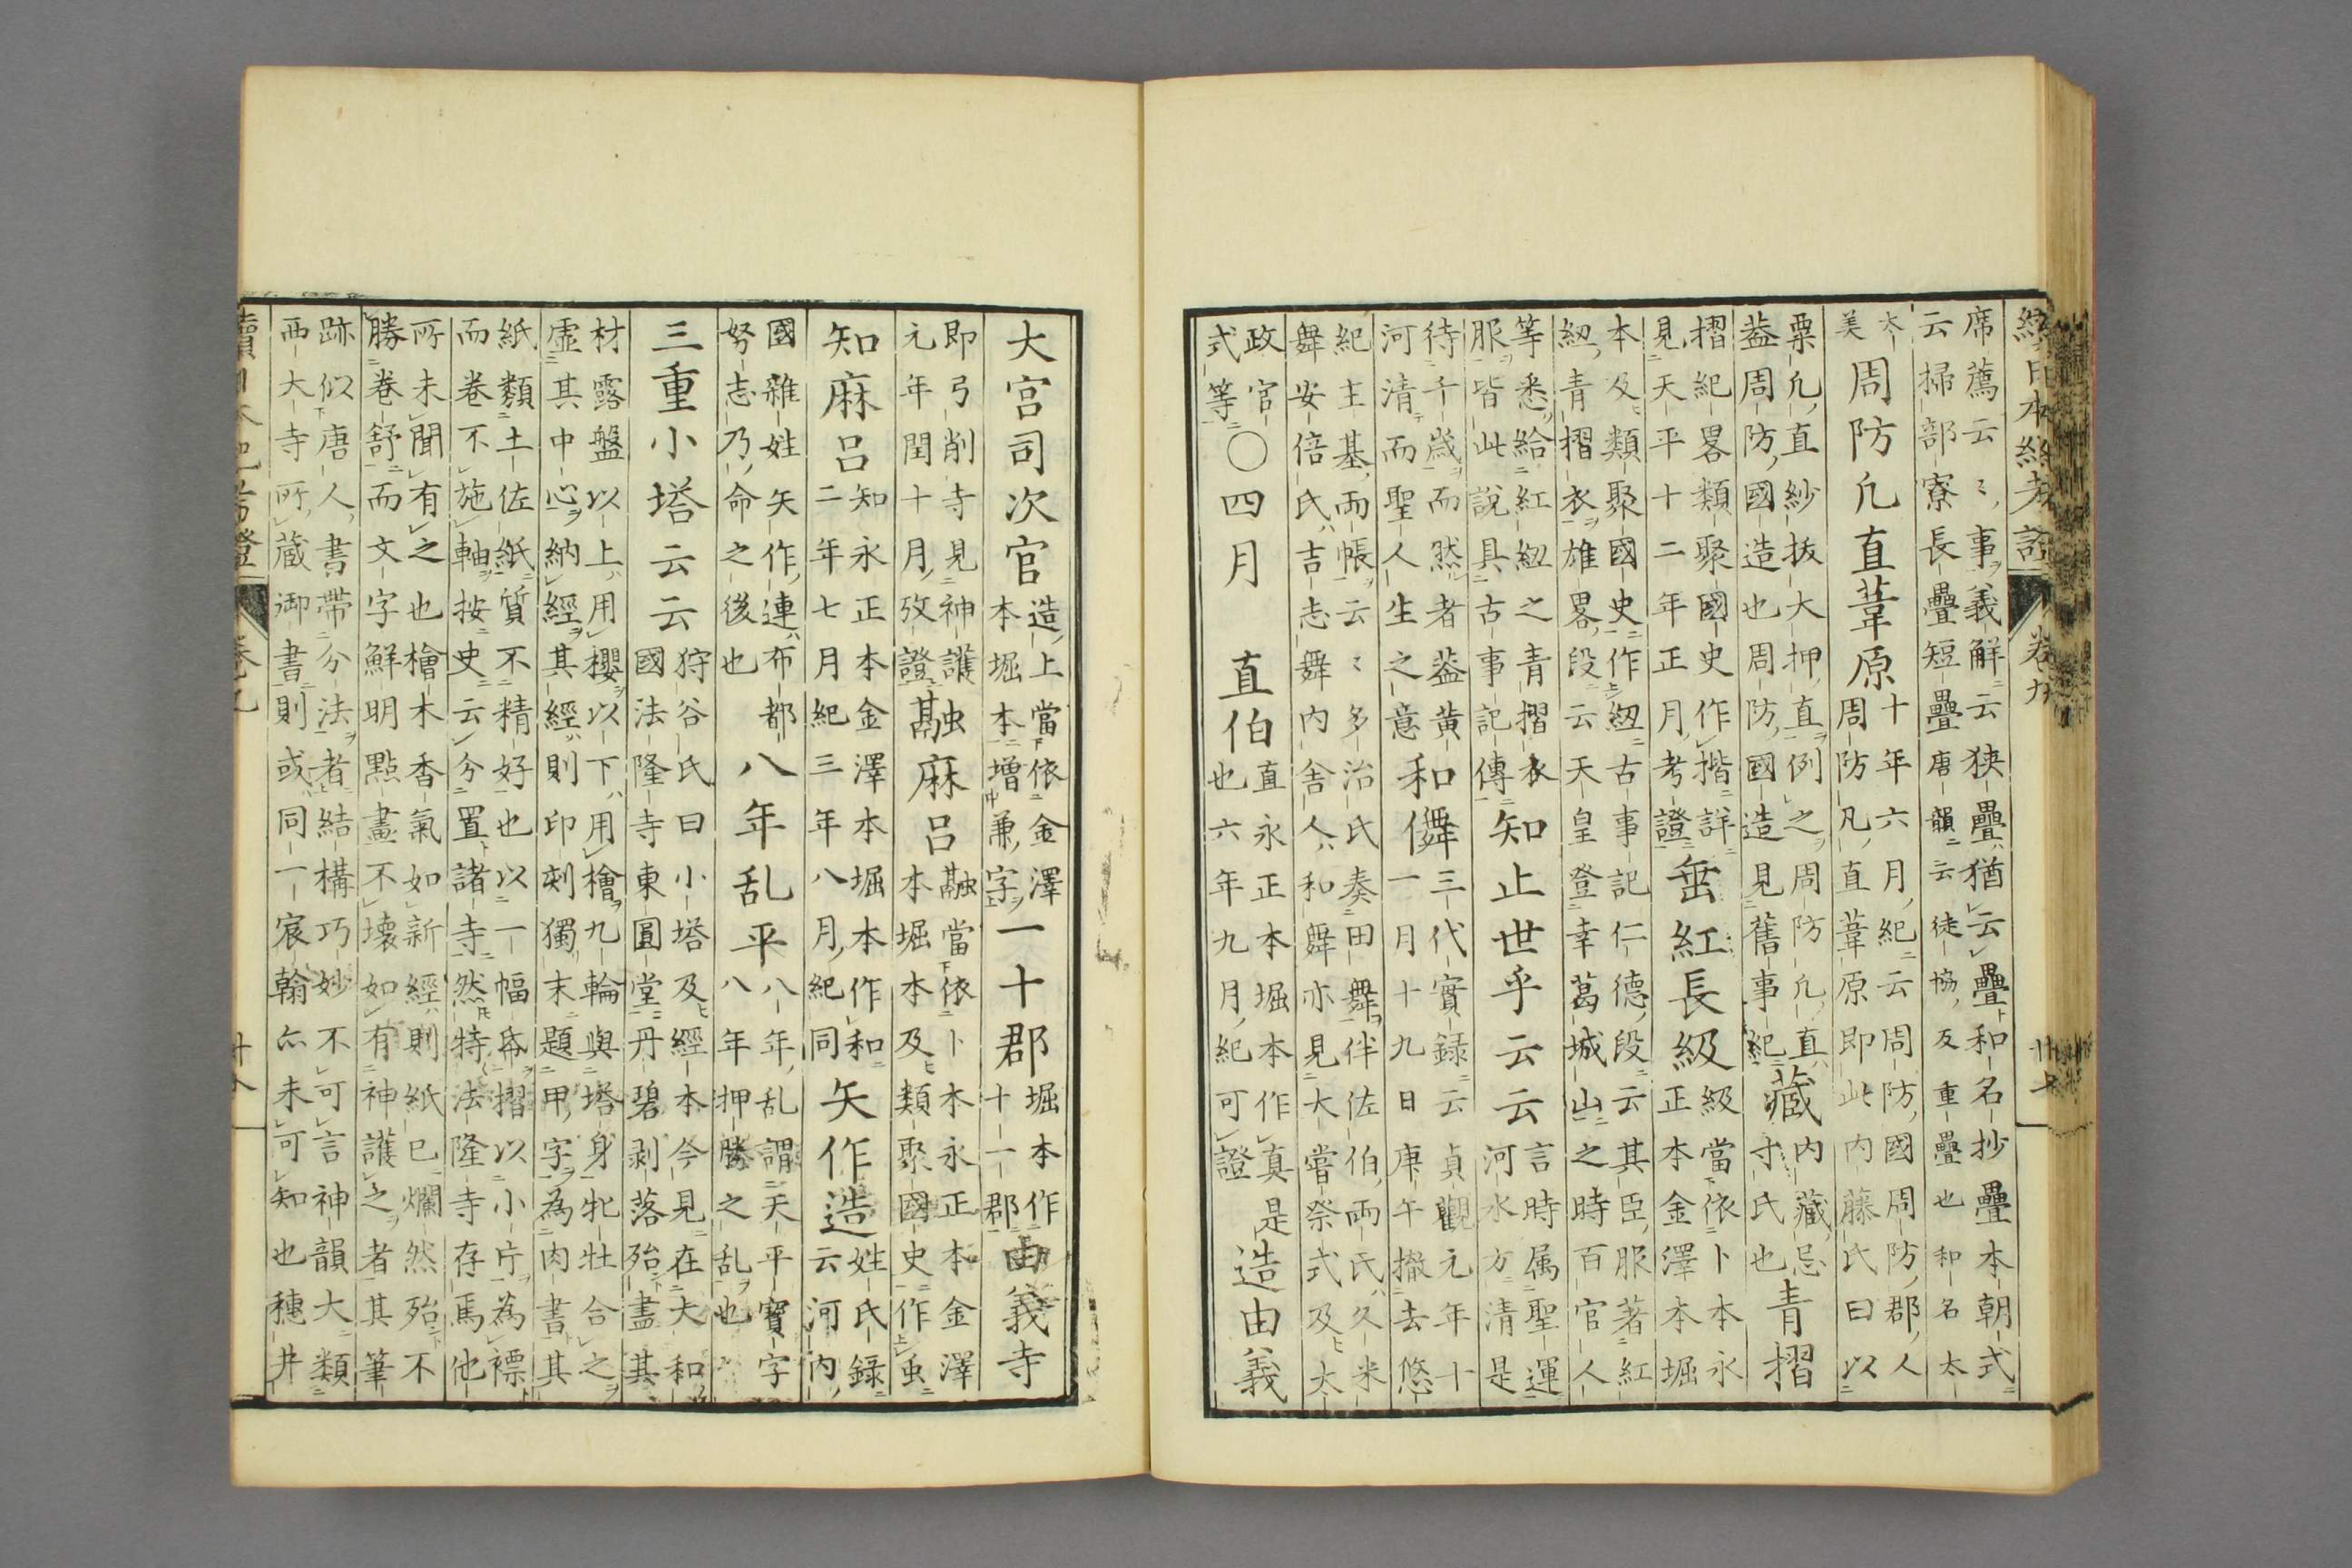 續日本紀考證 卷九
席薦云〻事義解云狹疊猶云疊和名抄疊本朝式
云掃部寮長疊短疊唐韻云徒協反重疊也和名太
太美
周防凢直葦原
十年六月紀云周防國周防郡人
周防凡直葦原即此内藤氏曰以
粟凢直紗抜大押直例之周防凢直
葢周防國造也周防國造見舊事紀
藏
内藏忌
寸氏也
青摺
摺紀畧類聚國史作揩詳
見天平十二年正月考證
垂紅長級
級當依卜本永
正本金澤本堀
本及類聚國史作紐古事記仁德段云其臣服著紅
紐青摺衣雄畧段云天皇登幸葛城山之時百官人
等悉給紅紐之青摺衣
服皆此說具古事記傳
知止世乎云云
言時属聖運
河水方清是
待千歳而然者葢黄
河清而聖人生之意
和儛
三代實録云貞觀元年十
一月十九日庚午撤去悠
紀主基両帳云〻多治氏奏田舞伴佐伯両氏久米
舞安倍氏吉志舞内舎人和舞亦見大嘗祭式及太
政官
式等
〇四月
直伯
直永正本堀本作真是
也六年九月紀可證
造由義
大宮司次官
造上當依金澤
本堀本增兼字
一十郡
堀本作
十一郡
由義寺
即弓削寺見神護
元年閏十月攷證
䰛麻呂
䰛當依卜本永正本金澤
本堀本及類聚國史作䖝
知麻呂
知永正本金澤本堀本作和
二年七月紀三年八月紀同
矢作造
姓氏録
云河内
國雜姓矢作連布都
努志乃命之後也
八年乱平
八年乱謂天平寶字
八年押勝之乱也
三重小塔云云
狩谷氏曰小塔及經本今見在大和
國法隆寺東圓堂丹碧剥落殆盡其
材露盤以上用櫻以下用檜九輪與塔身牝牡合之
虚其中心納經其經則印刻獨末題甲字為肉書其
紙類土佐紙質不精好也以一幅帋摺以小庁為褾
而卷不施軸按史云分置諸寺然特法隆寺存焉他
所未聞有之也檜木香氣如新經則紙已爛然殆不
勝卷舒而文字鮮明點畫不壊如有神護之者其筆
跡似唐人書帶分法者結構巧妙不可言神韻大類
西大寺所藏御書則或同一宸翰亦未可知也穗井
續日本紀考證 卷九